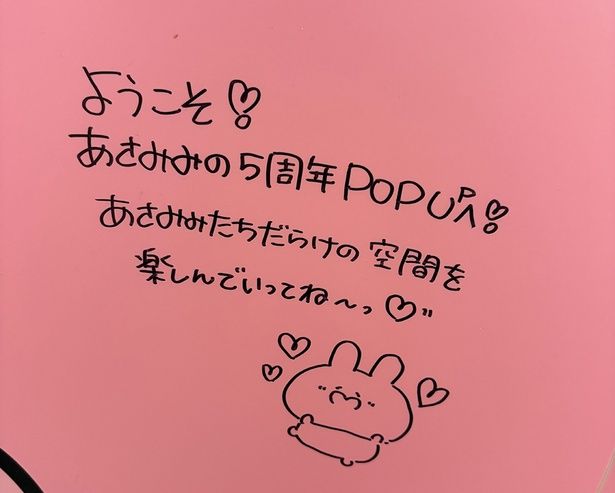 ようこそ♡!
あさみみの5周年POPUPへ♡!
あさみみたちだらけの空間を
楽しんでいってね〜っ♡"